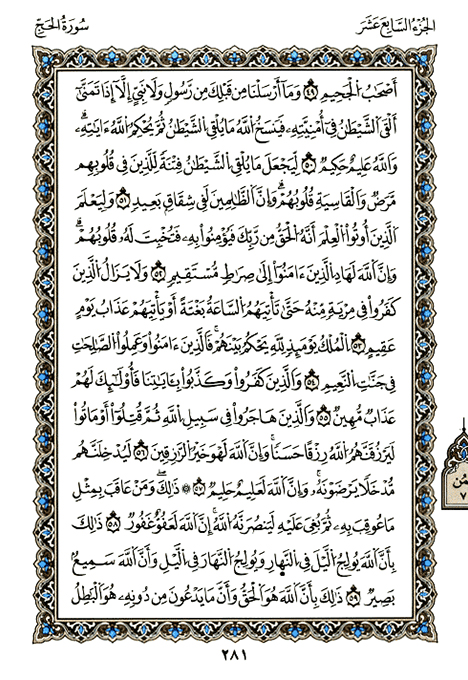 الجُزْءُ السَّابِعَ عَشَرَ
سُورَةُ الحَجِّ
أَصْحَٰبُ الْجَحِيمِ ٤٩ وَمَا أَرْسَلْنَا مِن قَبْلِكَ مِن رَّسُولٍ وَلَا نَبِيٍّ إِلَّا إِذَا تَمَنَّىٰٓ
أَلْقَى الشَّيْطَٰنُ فِي أُمْنِيَّتِهِۦ فَيَنسَخُ اللَّهُ مَا يُلْقِي الشَّيْطَٰنُ ثُمَّ يُحْكِمُ اللَّهُ ءَايَٰتِهِۦ
وَاللَّهُ عَلِيمٌ حَكِيمٌ ٥٠ لِّيَجْعَلَ مَا يُلْقِي الشَّيْطَٰنُ فِتْنَةً لِّلَّذِينَ فِي قُلُوبِهِم
مَّرَضٌ وَالْقَاسِيَةِ قُلُوبُهُمْ وَإِنَّ الظَّٰلِمِينَ لَفِي شِقَاقٍ بَعِيدٍ ٥١ وَلِيَعْلَمَ
الَّذِينَ أُوتُوا الْعِلْمَ أَنَّهُ الْحَقُّ مِن رَّبِّكَ فَيُؤْمِنُوا بِهِۦ فَتُخْبِتَ لَهُۥ قُلُوبُهُمْ
وَإِنَّ اللَّهَ لَهَادِ الَّذِينَ ءَامَنُوا إِلَىٰ صِرَٰطٍ مُّسْتَقِيمٍ ٥٢ وَلَا يَزَالُ الَّذِينَ
كَفَرُوا فِي مِرْيَةٍ مِّنْهُ حَتَّىٰ تَأْتِيَهُمُ السَّاعَةُ بَغْتَةً أَوْ يَأْتِيَهُمْ عَذَابُ يَوْمٍ
عَقِيمٍ ٥٣ الْمُلْكُ يَوْمَئِذٍ لِّلَّهِ يَحْكُمُ بَيْنَهُمْ فَالَّذِينَ ءَامَنُوا وَعَمِلُوا الصَّٰلِحَٰتِ
فِي جَنَّٰتِ النَّعِيمِ ٥٤ وَالَّذِينَ كَفَرُوا وَكَذَّبُوا بِـَٔايَٰتِنَا فَأُولَٰٓئِكَ لَهُمْ
عَذَابٌ مُّهِينٌ ٥٥ وَالَّذِينَ هَاجَرُوا فِي سَبِيلِ اللَّهِ ثُمَّ قُتِلُوا أَوْ مَاتُوا
لَيَرْزُقَنَّهُمُ اللَّهُ رِزْقًا حَسَنًا وَإِنَّ اللَّهَ لَهُوَ خَيْرُ الرَّٰزِقِينَ ٥٦ لَيُدْخِلَنَّهُم
مُّدْخَلًا يَرْضَوْنَهُۥ وَإِنَّ اللَّهَ لَعَلِيمٌ حَلِيمٌ ٥٧ ذَٰلِكَ وَمَنْ عَاقَبَ بِمِثْلِ
مَا عُوقِبَ بِهِۦ ثُمَّ بُغِيَ عَلَيْهِ لَيَنصُرَنَّهُ اللَّهُ إِنَّ اللَّهَ لَعَفُوٌّ غَفُورٌ ٥٨ ذَٰلِكَ
بِأَنَّ اللَّهَ يُولِجُ الَّيْلَ فِي النَّهَارِ وَيُولِجُ النَّهَارَ فِي الَّيْلِ وَأَنَّ اللَّهَ سَمِيعٌ
بَصِيرٌ ٥٩ ذَٰلِكَ بِأَنَّ اللَّهَ هُوَ الْحَقُّ وَأَنَّ مَا يَدْعُونَ مِن دُونِهِۦ هُوَ الْبَٰطِلُ
٢٨١